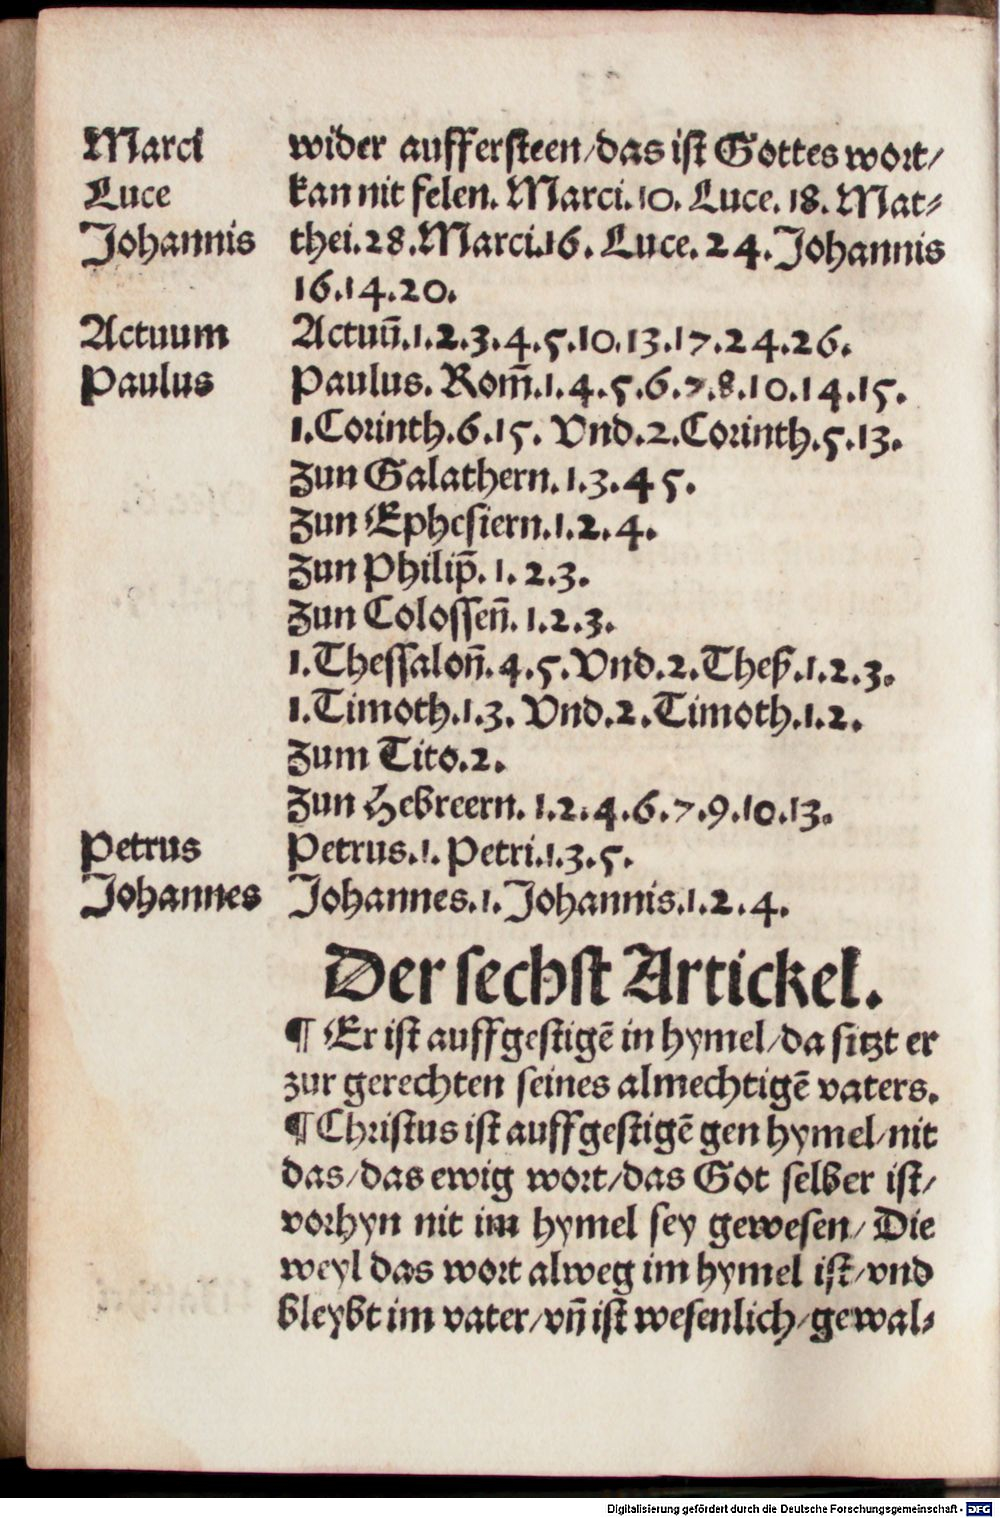 Marci wider aufferſteen/das iſt Gottes wort/
Luce kan nit felen. Marci.10. Luce.18. Mat-
Johannis thei.28.Marci.16. Luce.24.Johannis
16.14.20.
Actuum Actuū.1.2.3.4.5.10.13.17.24.26.
Paulus Paulus. Rom̄.1.4.5.6.7.8.10.14.15.
1.Corinth.6.15. Vnd.2.Corinth.5.13.
Zun Galathern.1.3.4 5.
Zun Epheſiern.1.2.4.
Zun Philip̄.1.2.3.
Zun Coloſſen̄.1.2.3.
1.Theſſalon̄.4.5.Vnd.2.Theß.1.2.3.
1.Timoth.1.3. Vnd.2.Timoth.1.2.
Zum Tito.2.
Zun Hebreern.1.2.4.6.7.9.10.13.
Petrus Petrus.1. Petri.1.3.5.
Johannes Johannes.1. Johannis.1.2.4.
Der ſechſt Artickel.
¶ Er iſt auffgeſtigē in hymel/da ſitzt er
zur gerechten ſeines almechtigē vaters.
¶ Chriſtus iſt auffgeſtigē gen hymel/nit
das/das ewig wort/das Got ſelber iſt/
vorhyn nit im hymel ſey geweſen/ Die
weyl das wort alweg im hymel iſt/vnd
bleybt im vater/vn̄ iſt weſenlich/gewal-
Digitalisierung gefördert durch die Deutsche Forschungsgemeinschaft - DFG